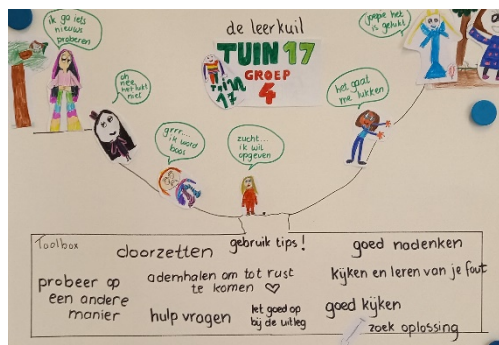 de leerkuil
TUIN 17
GROEP
4
Tuin
17
ik ga iets
nieuws
proberen
oh
nee,
het lukt
niet
grrr...
ik word
boos
zucht...
ik wil
opgeven
het gaat
me lukken
joepie het
is gelukt
Toolbox
doorzetten
gebruik tips!
goed nadenken
probeer op
een andere
manier
ademhalen om tot rust
te komen
kijken en leren van je fout
hulp vragen
let goed op
bij de uitleg
goed kijken
zoek oplossing